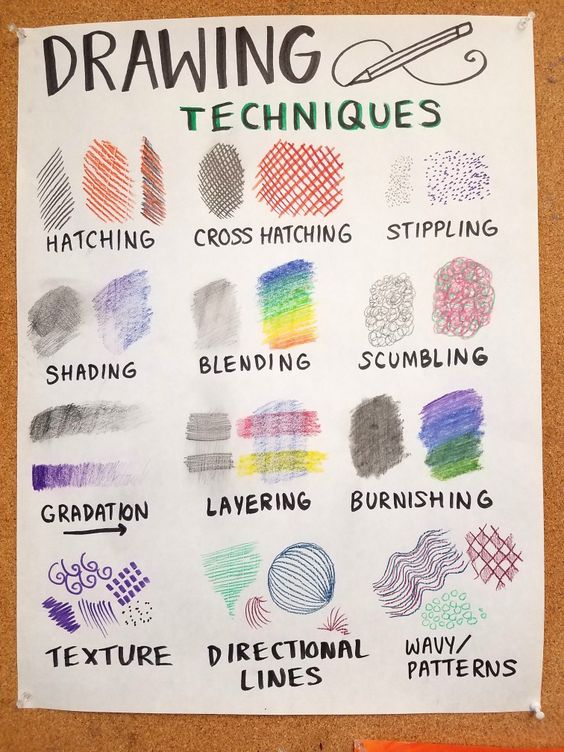 DRAWING
TECHNIQUES
HATCHING
CROSS HATCHING
STIPPLING
SHADING
BLENDING
SCUMBLING
GRADATION
LAYERING
BURNISHING
TEXTURE
DIRECTIONAL
LINES
WAVY/
PATTERNS